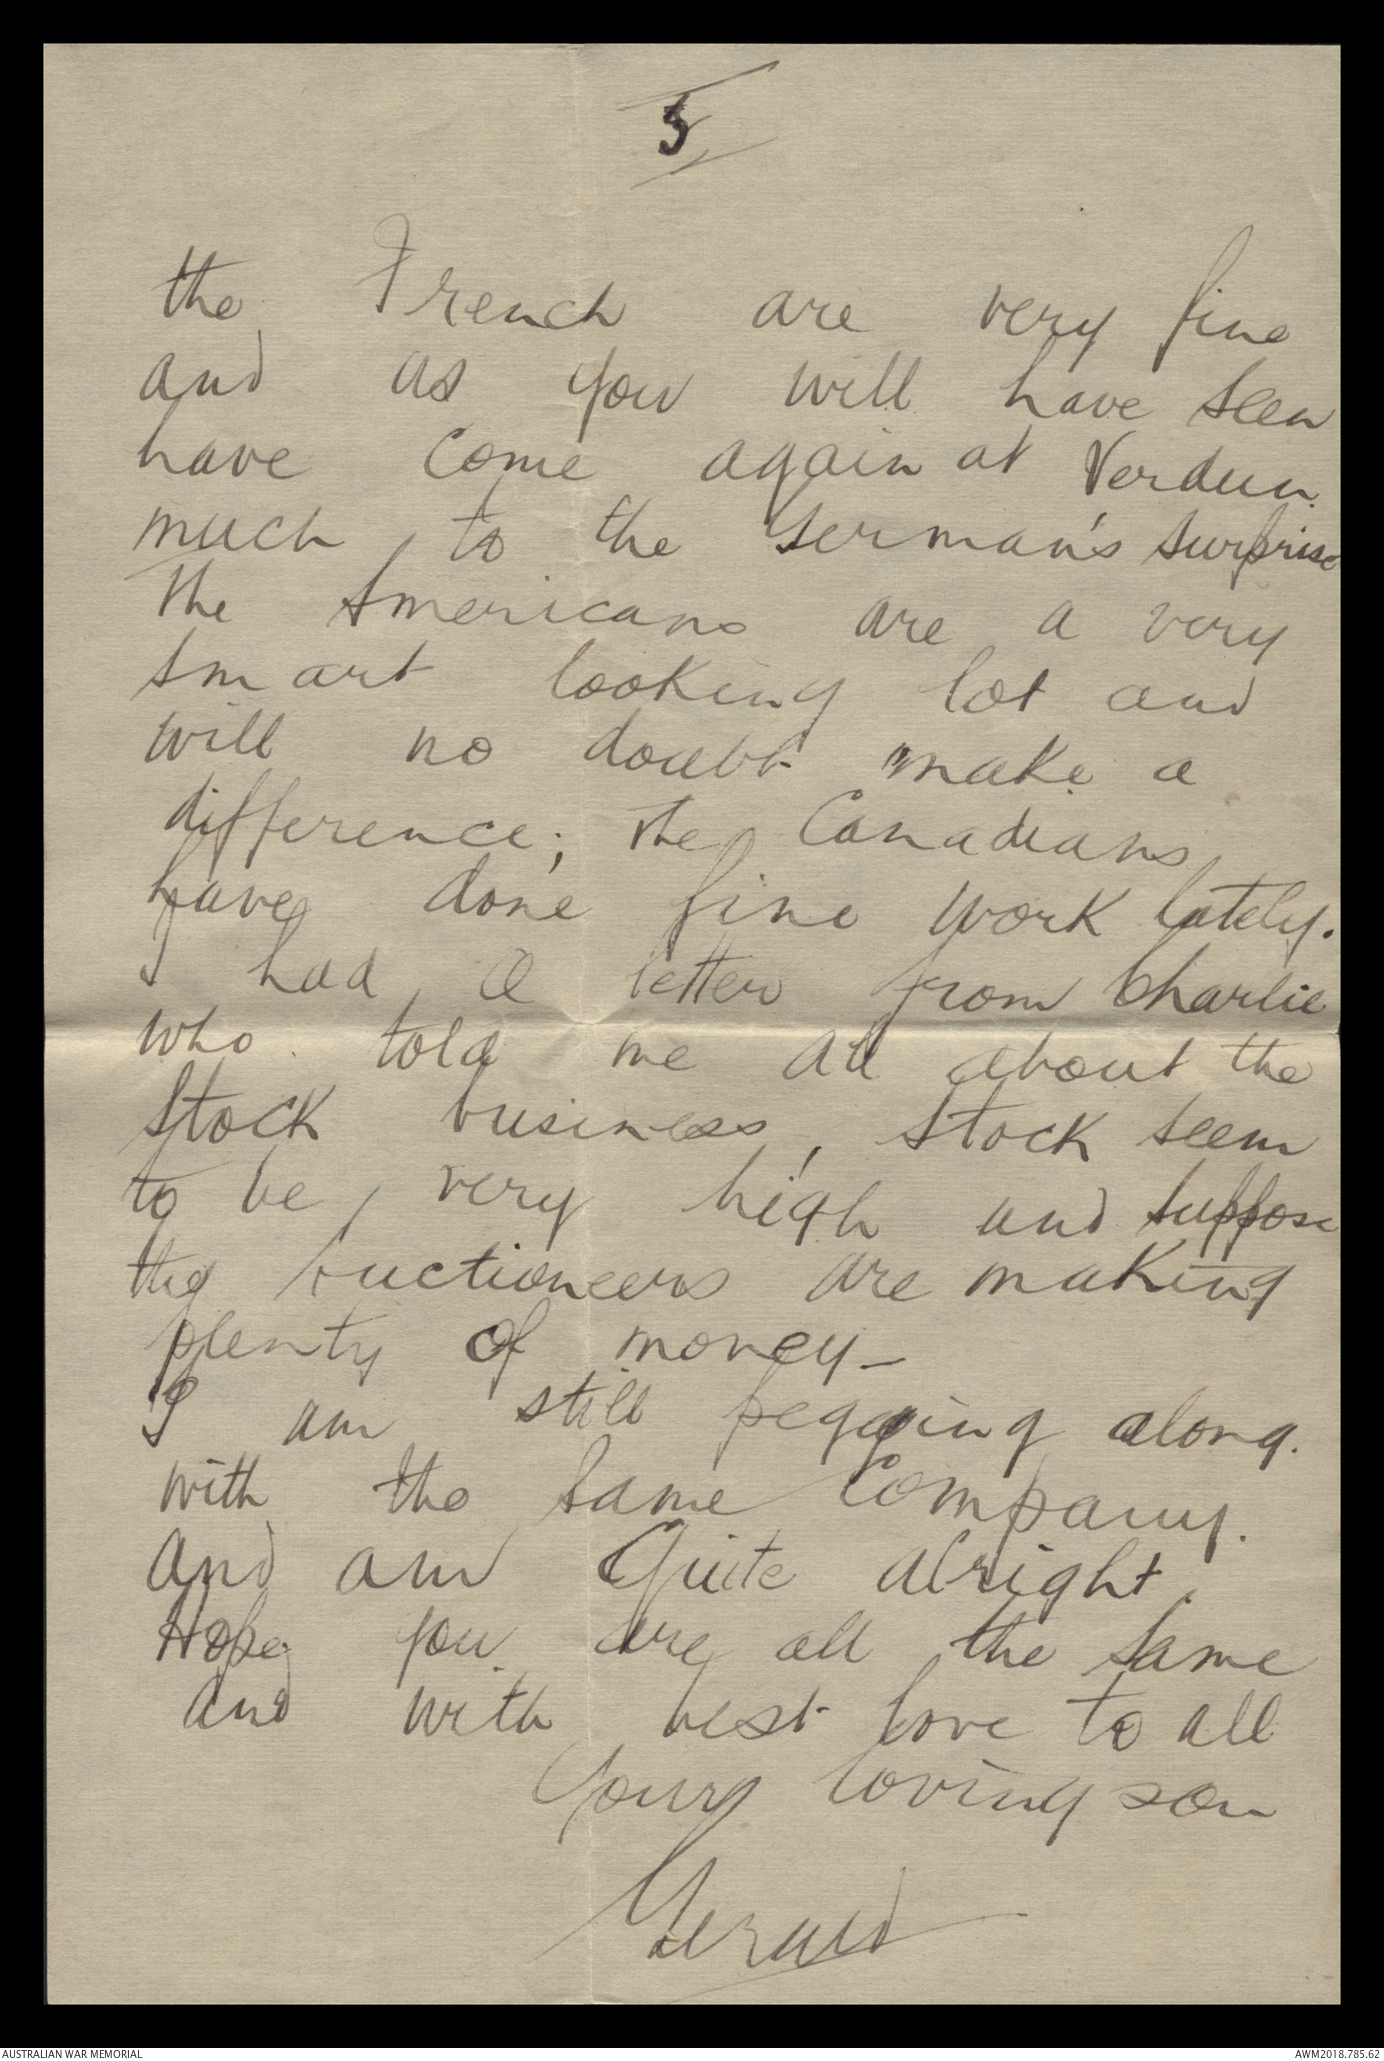 5
the French are very fine
and as you will have seen
have come again at Verdun
much to the German's surprise
The Americans are a very
smart looking lot and
will no doubt make a
difference; the Canadians
have done fine work lately.
I had a letter from Charlie
who told me all about the
stock business, stock seem
to be very high and suppose
the auctioneers are making
plenty of money –
I am still pegging along.
with the same Company.
And am Quite alright.
Hope you are all the same
and with best love to all
Your loving son
Gerald
AUSTRALIAN WAR MEMORIAL
AWM2018.785.62